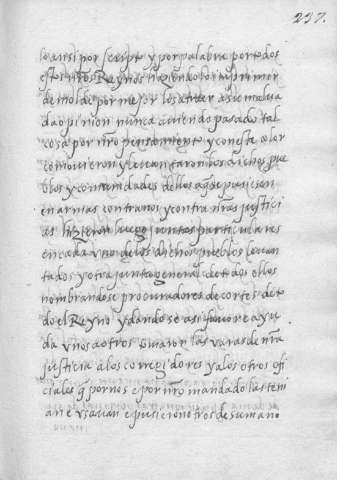 237.
lo ansi por scripto y por palabra por todos
estos nros Reynos haziendolo ymprimir
de molde por mejor los atraer a su maluada
da opinion nunca aviendo pasado tal
cosa por nro pensamiento y con este color
comovieron y levantaron los dichos pue
blos y comunidades dellos a q se pusiesen
en armas contra nos y contra nras justici
as hizieron luego juntas particulares
en cada vno de los dichos pueblos levan
tados y otra junta general de todos ellos
nombrandose procuradores de cortes de to
do el Reyno y dandose asi favor e ayu
da vnos a otros tomaron las varas de nra
justicia a los corregidores y a los otros ofi
ciales q por nos e por nro mandado las teni
an e vsavan e pusieron otros de su mano